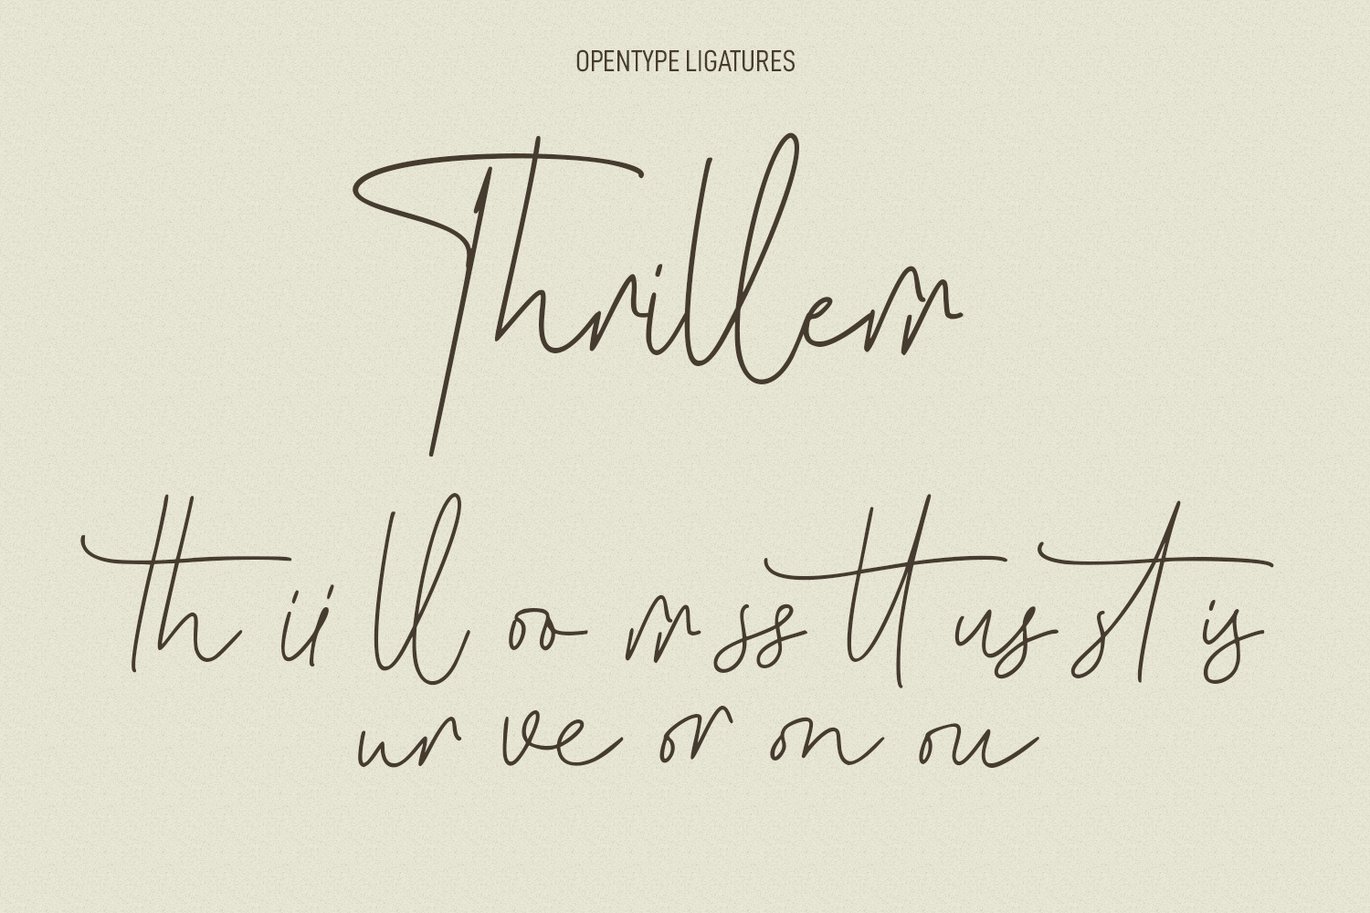 OPENTYPE LIGATURES
Thrillerr
th ii ll oo rr ss tt us st is
ur ve or on ou